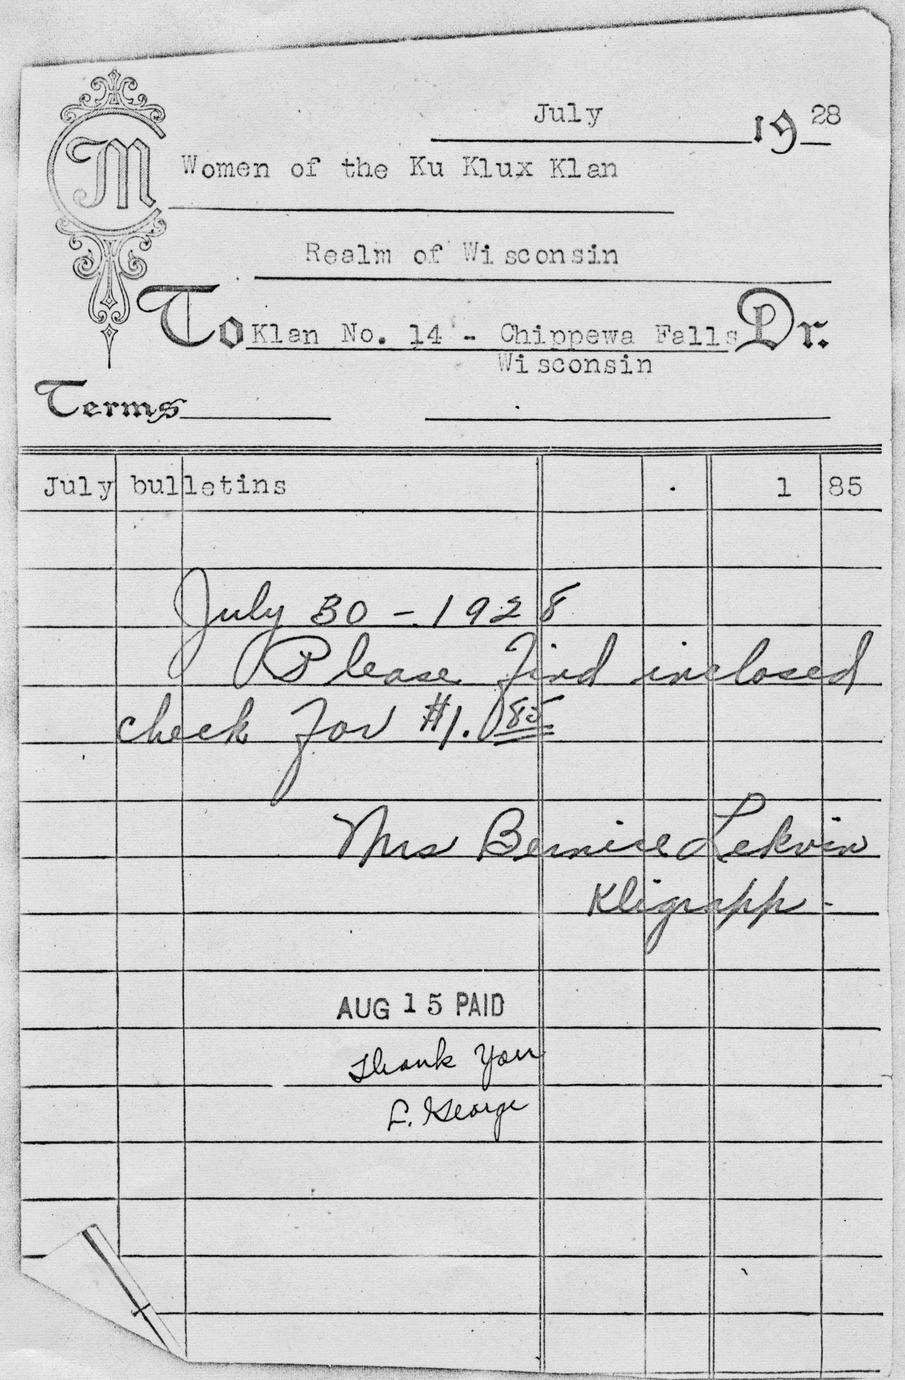 July 1928
M
Women of the Ku Klux Klan
Realm of Wisconsin
To Klan No. 14 - Chippewa Falls Dr.
Wisconsin
Terms
July bulletins 1 85
July 30 - 1928
Please find inclosed
check for $1.85
Mrs Bernice Lekvin
Kligrapp -
AUG 15 PAID
Thank You
L. George